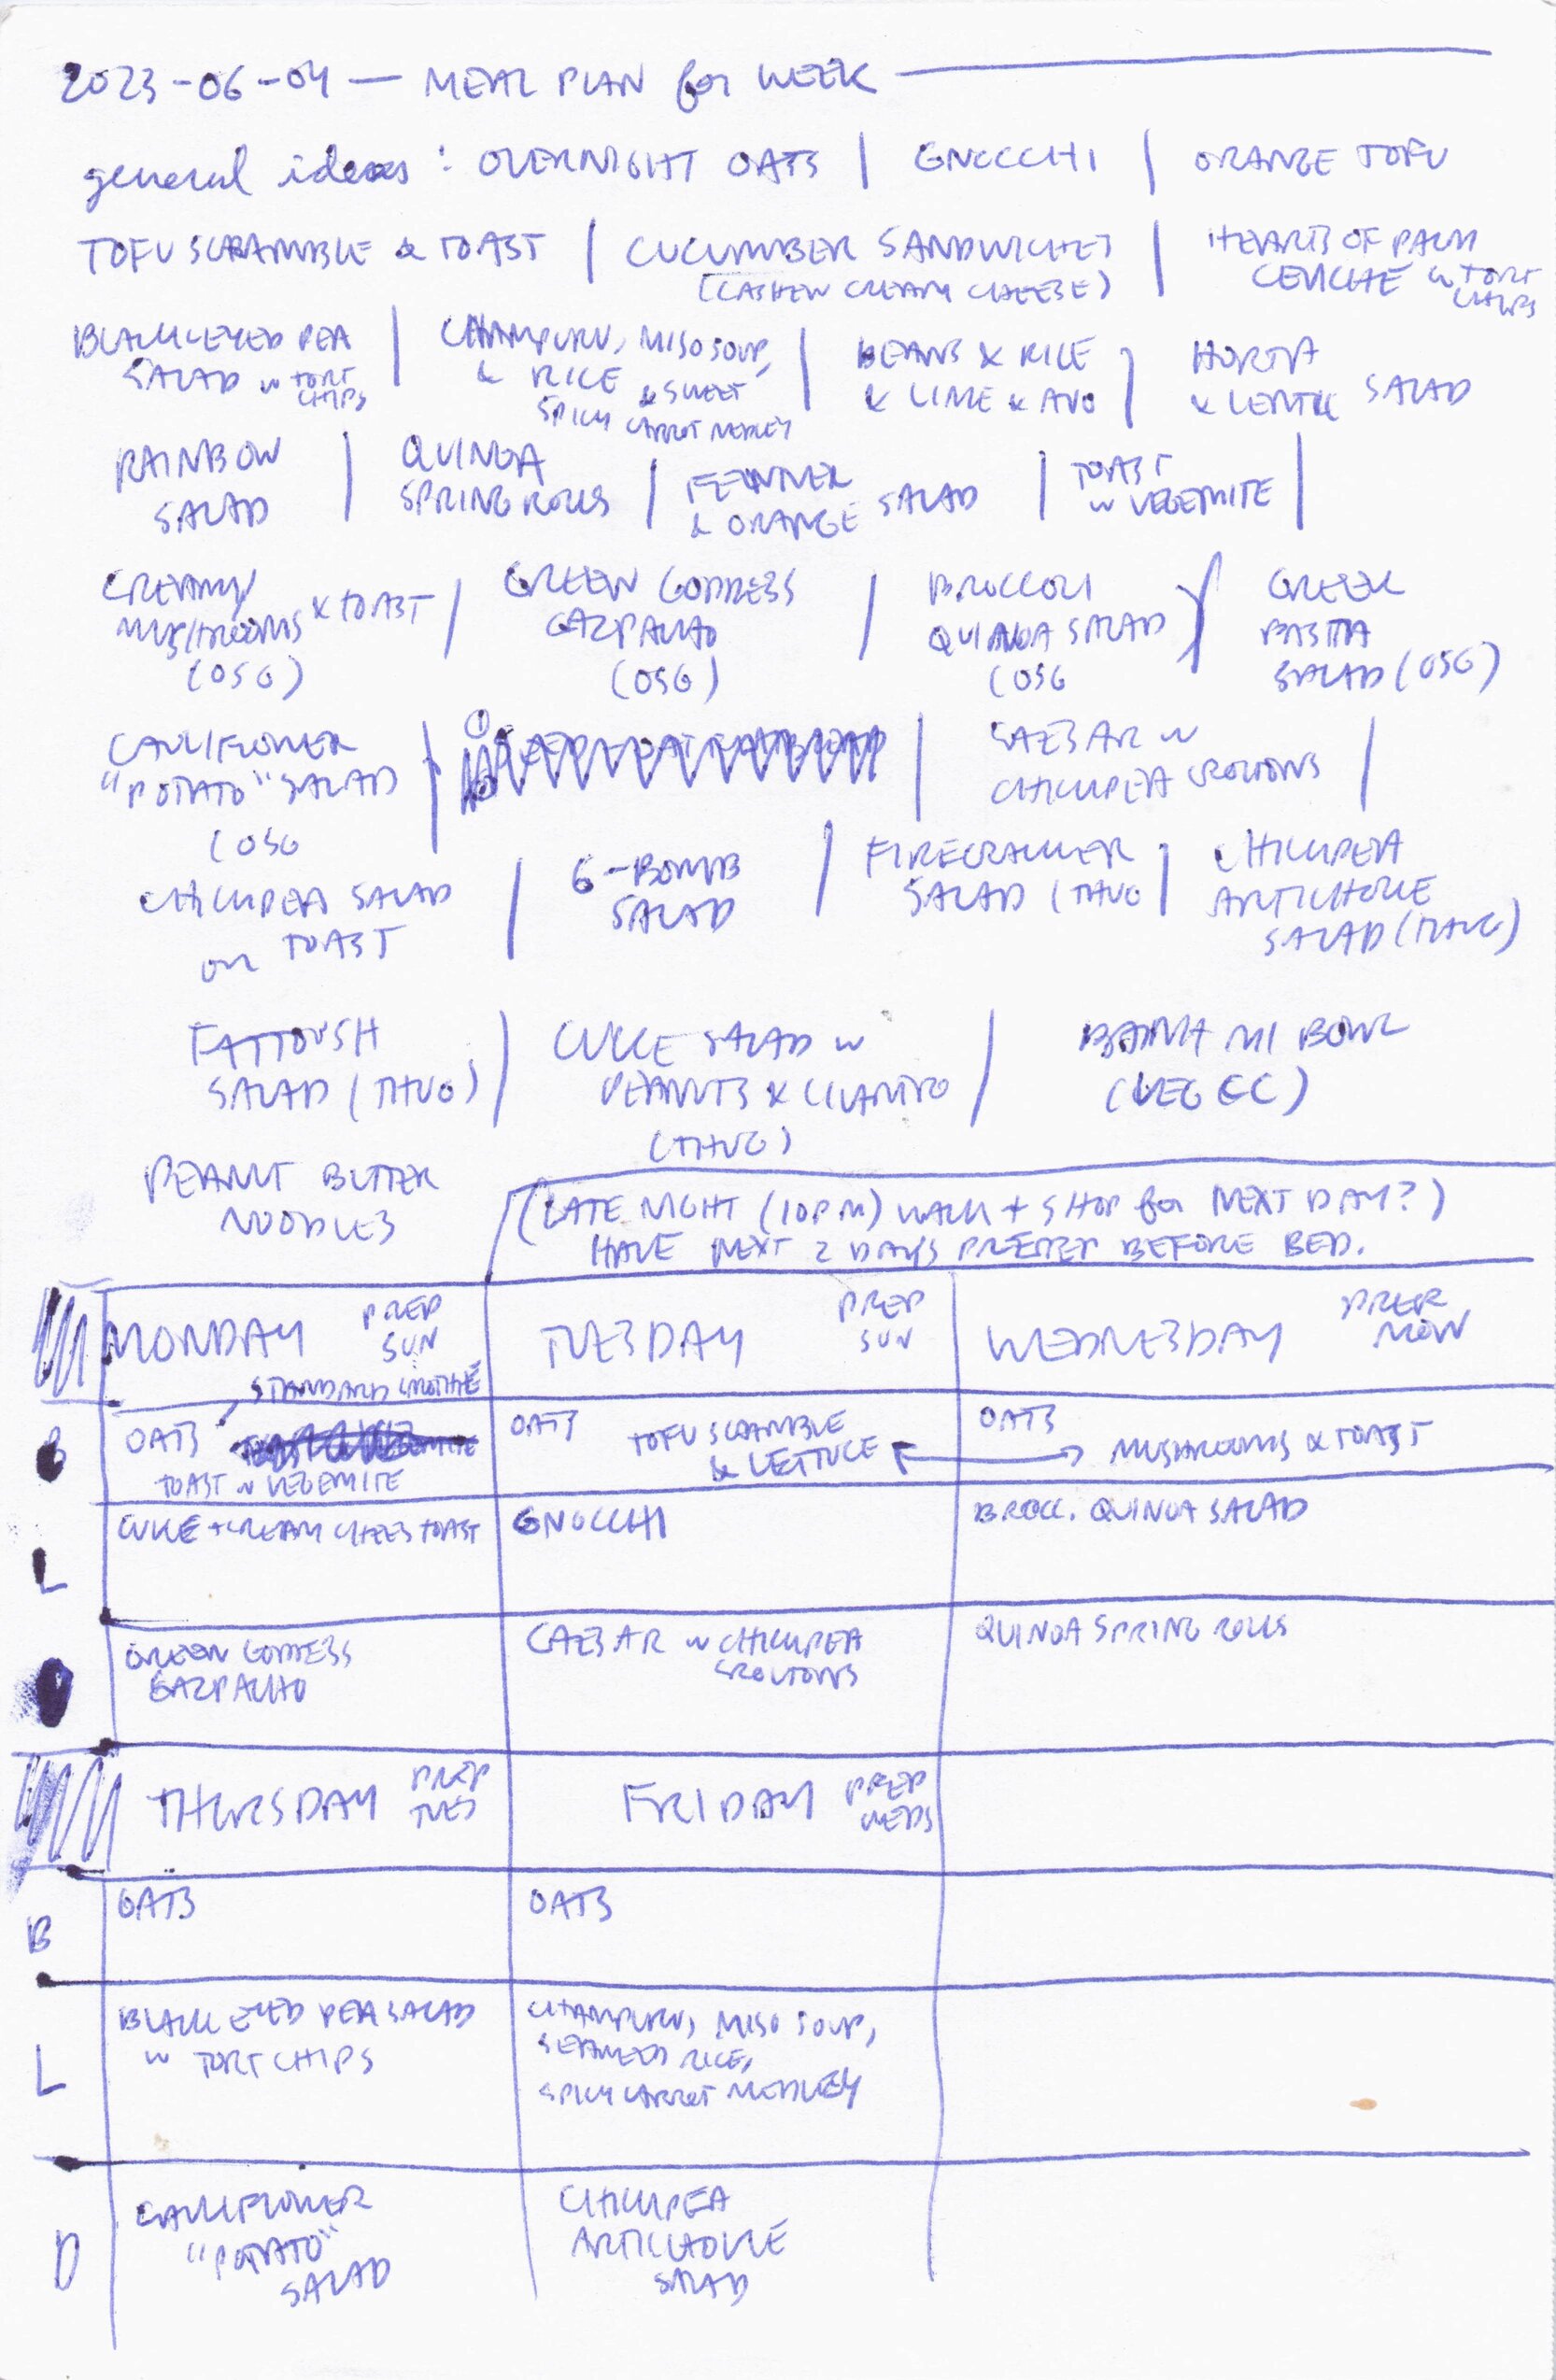 2023-06-04 — MEAL PLAN for WEEK
general ideas: OVERNIGHT OATS | GNOCCHI | ORANGE TOFU
TOFU SCRAMBLE & TOAST | CUCUMBER SANDWICHES (CASHEW CREAM CHEESE) | HEARTS OF PALM CEVICHE w TORT CHIPS
BLACK EYED PEA SALAD w TORT CHIPS | CHAMPURU, MISO SOUP, & RICE & SWEET SPICY CARROT MEDLEY | BEANS & RICE & LIME & AVO | HORTA & LENTIL SALAD
RAINBOW SALAD | QUINOA SPRING ROLLS | FENNEL & ORANGE SALAD | TOAST w VEGEMITE |
CREAMY MUSHROOMS & TOAST (OSG) | GREEN GODDESS GAZPACHO (OSG) | BROCCOLI QUINOA SALAD (OSG | GREEK PASTA SALAD (OSG)
CAULIFLOWER "POTATO" SALAD (OSG | CAESAR w CHICKPEA CROUTONS |
CHICKPEA SALAD on TOAST | G-BOMB SALAD | FIRECRACKER SALAD (THUG | CHICKPEA ARTICHOKE SALAD (THUG)
FATTOUSH SALAD (THUG) | CUKE SALAD w PEANUTS & CILANTRO (THUG) | BANH MI BOWL (VEG EC)
PEANUT BUTTER NOODLES
(LATE NIGHT (10PM) WALK + SHOP for NEXT DAY?)
HAVE NEXT 2 DAYS PREPPED BEFORE BED.
MONDAY PREP SUN
TUESDAY PREP SUN
WEDNESDAY PREP MON
B
OATS, STANDARD SMOOTHIE
TOAST w VEGEMITE
OATS TOFU SCRAMBLE & LETTUCE
OATS MUSHROOMS & TOAST
L
CUKE + CREAM CHEES TOAST
GNOCCHI
BROCC. QUINOA SALAD
GREEN GODDESS
GAZPACHO
CAESAR w CHICKPEA
CROUTONS
QUINOA SPRING ROLLS
THURSDAY PREP TUES
FRIDAY PREP WEDS
B
OATS
OATS
L
BLACK EYED PEA SALAD
w TORT CHIPS
CHAMPURU, MISO SOUP,
STEAMED RICE,
SPICY CARROT MEDLEY
D
CAULIFLOWER
"POTATO"
SALAD
CHICKPEA
ARTICHOKE
SALAD